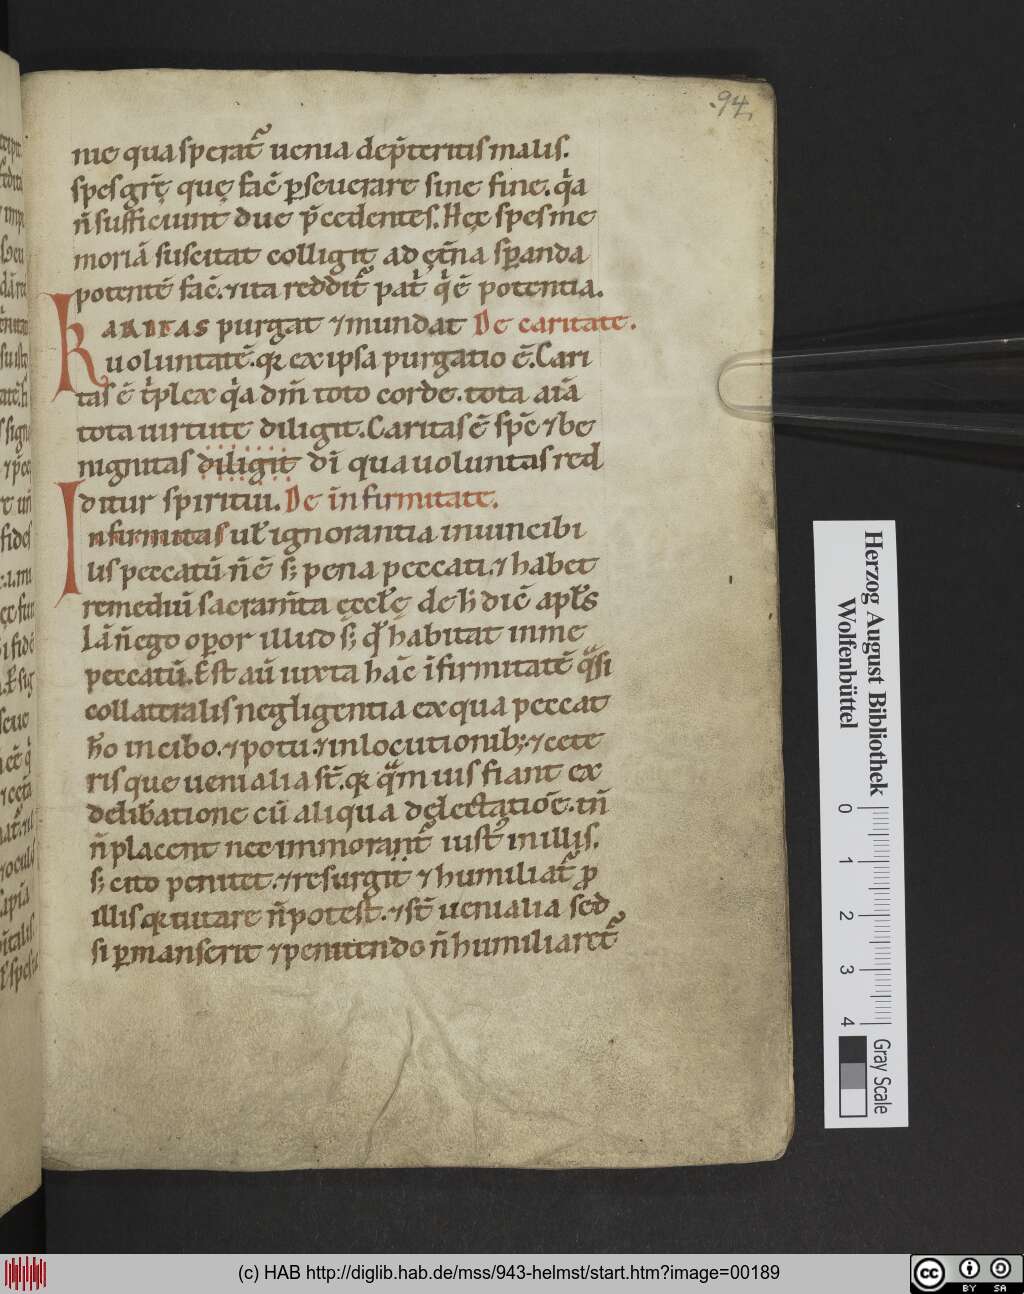 94.
nie qua sperat᷑ uenia dep̄teritis malis.
spes gr̄ę quę facē ꝑseuerare sine fine. q̇a
n̄ sufficiunt due p̄cedentes. Hęc spes me
moriā suscitat colligit ad ęt̄na sꝑanda
potentē facē. ⁊ ita reddit᷑ pat̄ q̇ ē potentia.
KARITAS purgat ⁊ mundat De caritate.
uoluntatē. qꝛ ex ipsa purgatio ē. Cari
tas ē t̍plex q̇a dm̄ toto corde. tota aīa
tota uirtute diligit. Caritas ē spc̄ ⁊ be
nignitas diligit dī qua uoluntas red
ditur spiritui. De īnfirmitate.
Infirmitas ut̄ ignorantia inuincibi
lis peccatū n̄ ē s; pena peccati. ⁊ habet
remediū sacram̄ta ęccłę de h̄ dic̄ apłs
Iā n̄ ego oꝑor illud s; qd̄ habitat in me
peccatū. Est aū iuxta hāc īfirmitatē qᵃsi
collateralis negligentia ex qua peccat
h̄o in cibo. ⁊ potu. ⁊ in locutionib;. ⁊ cete
ris que uenialia st̄. qꝛ qᵃm uis fiant ex
delib̄atione cū aliqua delectatiōe. tn̄
n̄ placent nec immorant᷑ iustᷣ in illis.
s; cito penitet. ⁊ resurgit ⁊ humiliat᷑ ꝓ
illis qꝛ uitare n̄ potest. ⁊ st̄ uenialia sed
si ꝑmanserit ⁊ penitendo n̄ humiliaret᷑
Herzog August Bibliothek
Wolfenbüttel
0 1 2 3 4
Gray Scale
(c) HAB http://diglib.hab.de/mss/943-helmst/start.htm?image=00189
cc BY SA